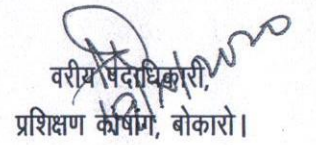 वरीय पदाधिकारी,
प्रशिक्षण कोषांग, बोकारो।